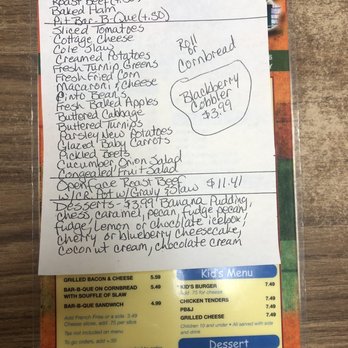 Roast Beef (+.50)
Baked Ham
Pit Bar-B-Que (+.50)
Sliced Tomatoes
Cottage Cheese
Cole Slaw
Creamed Potatoes
Fresh Turnip Greens
Fresh Fried Corn
Macaroni & Cheese
Pinto Beans
Fresh Baked Apples
Buttered Cabbage
Buttered Turnips
Parsley New Potatoes
Glazed Baby Carrots
Pickled Beets
Cucumber Onion Salad
Congealed Fruit Salad
Roll
or
Cornbread
Blackberry
Cobbler
$3.99
Openface Roast Beef $11.41
w/CR. Pot w/Gravy & Slaw
Desserts - $3.99 Banana Pudding,
chess, caramel, pecan, fudge pecan,
fudge, lemon or chocolate icebox,
cherry or blueberry cheesecake,
coconut cream, chocolate cream
GRILLED BACON & CHEESE 5.59
BAR-B-QUE ON CORNBREAD 5.49
WITH SOUFFLE OF SLAW
BAR-B-QUE SANDWICH 4.99
Add French Fries or a side 3.49
Cheese slice, add .75 per slice
Tax not included on menu
To go orders, add .35
Kid's Menu
KID'S BURGER 7.49
Add .75 for cheese
CHICKEN TENDERS 7.49
PB&J 7.49
GRILLED CHEESE 7.49
Children 10 and under • All served with side
and drink
Dessert